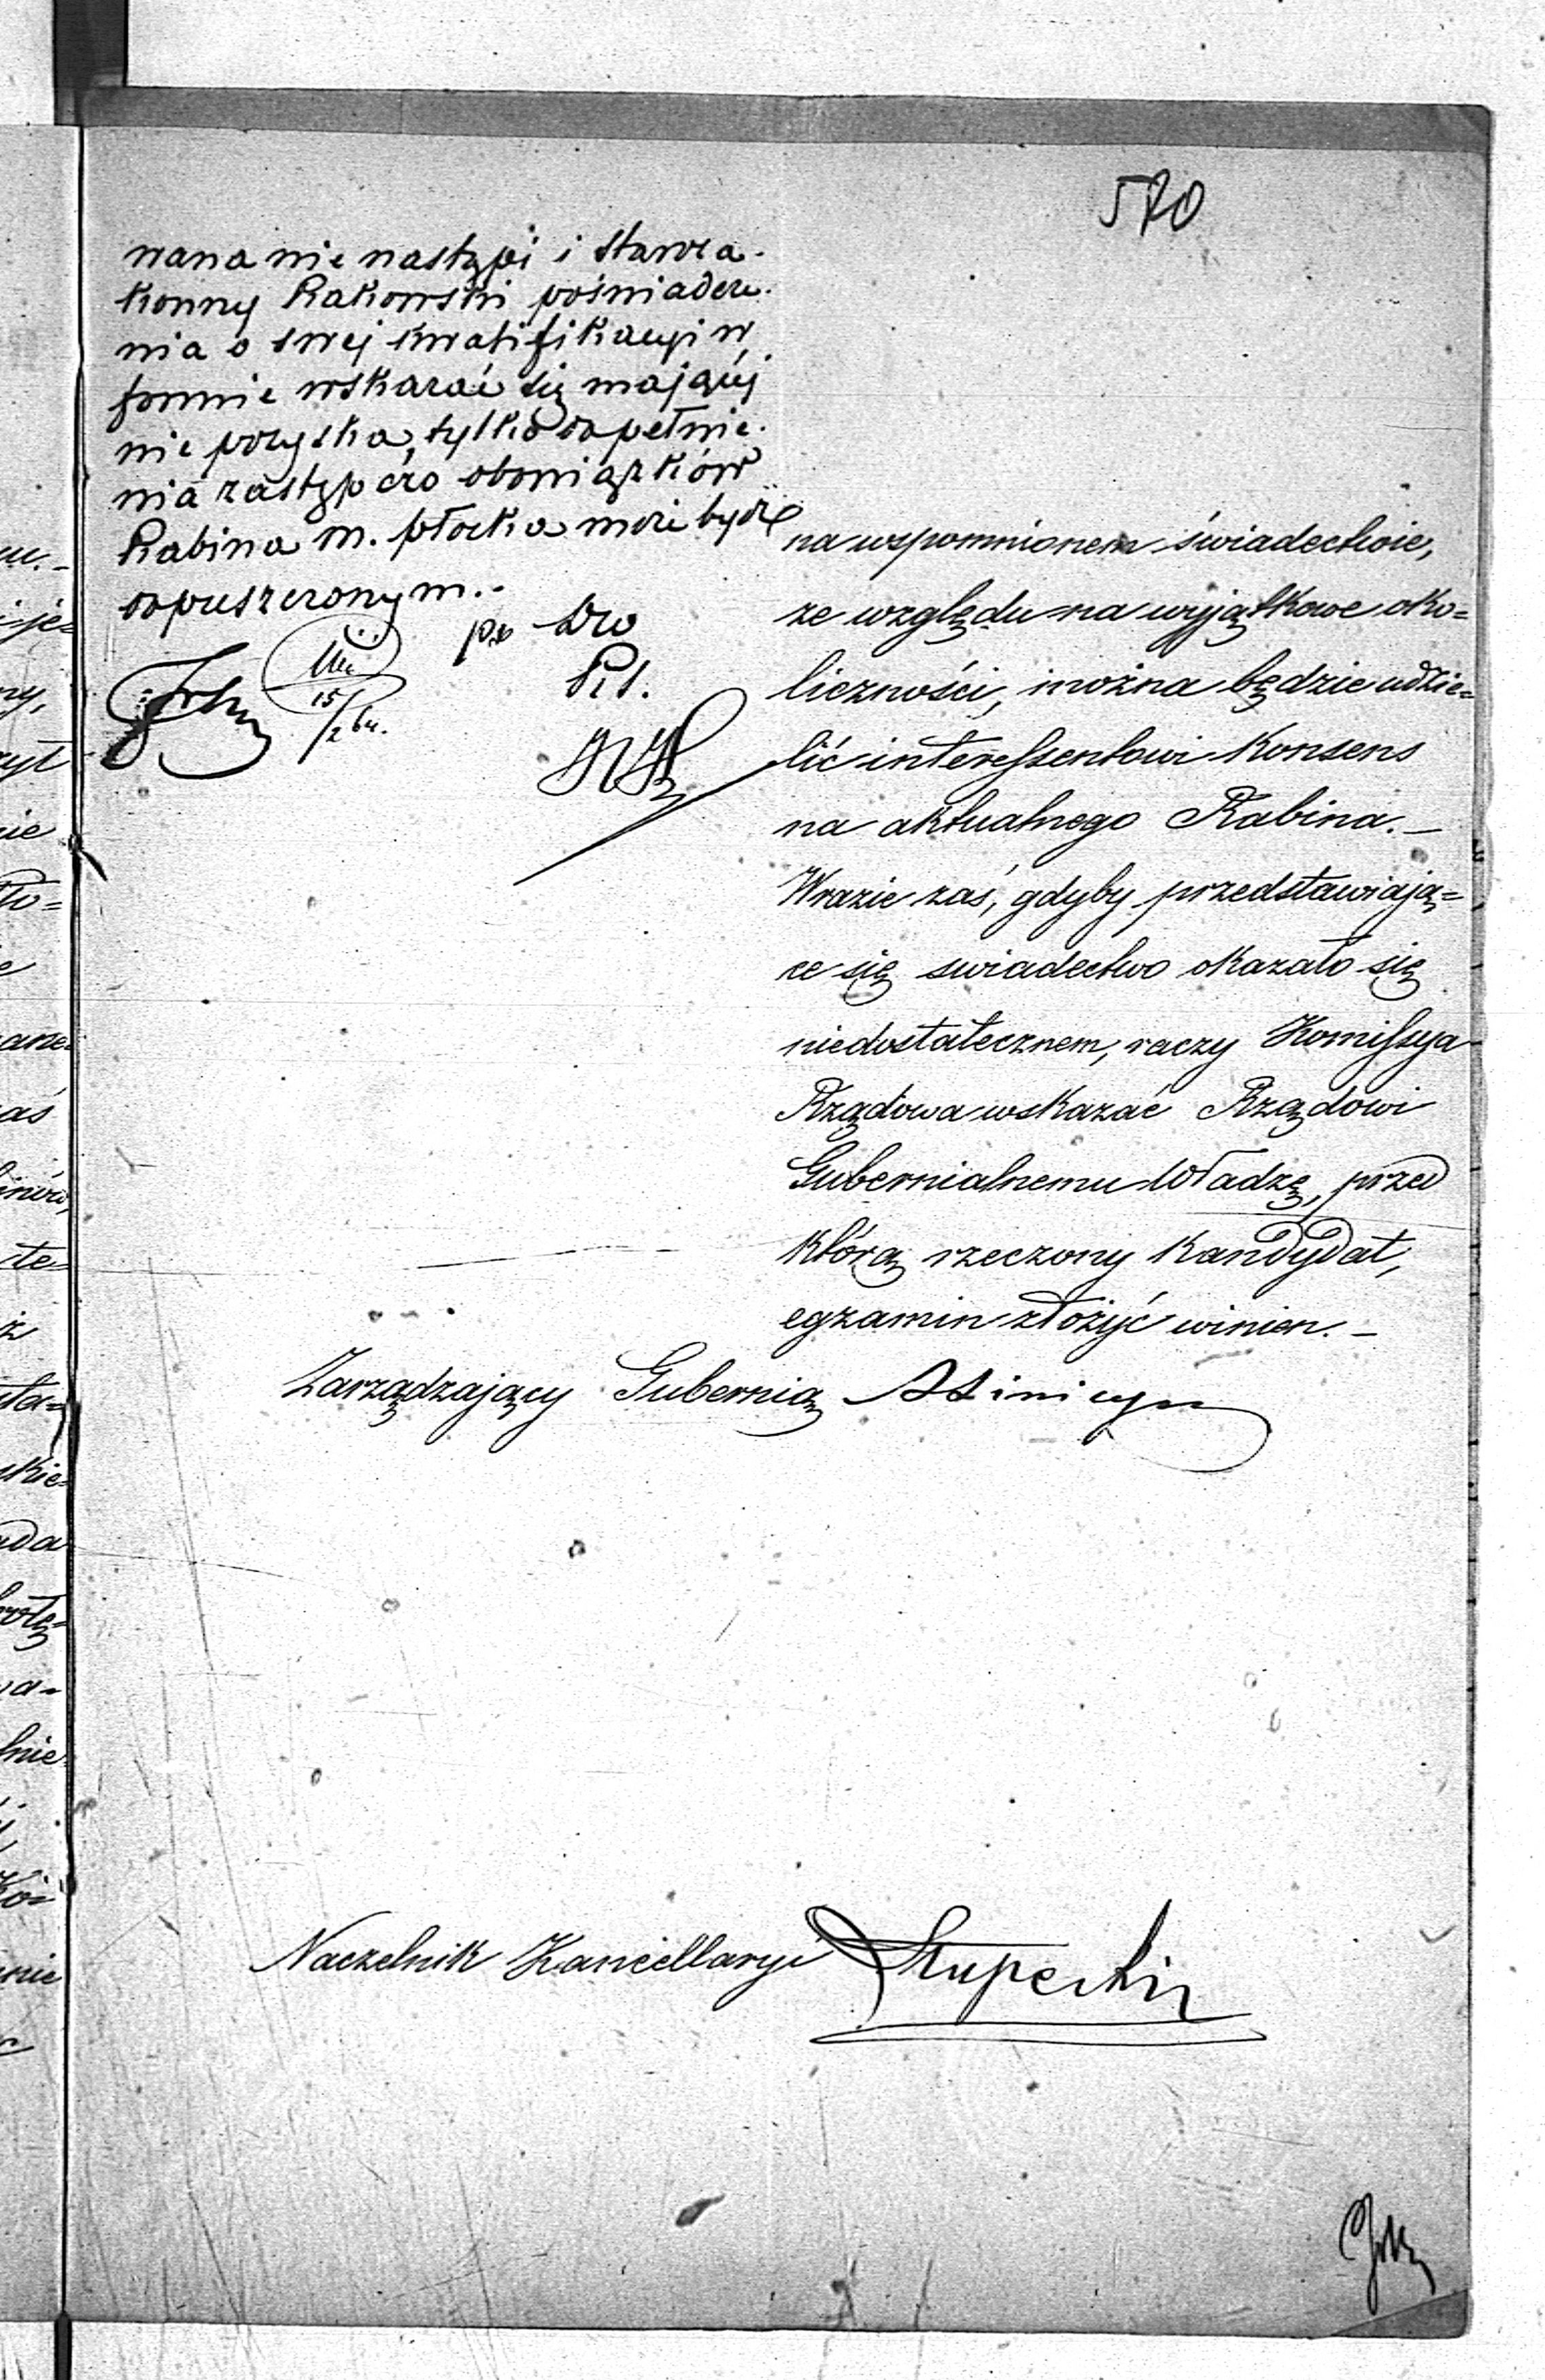 570
wana nie nastąpi i Staroza-
konny Rakowski poświadcze-
nia o swej kwalifikacyi w
formie wskazać się mającéj
nie pozyska, tylko do pełnie-
nia zastępczo obowiązków
Rabina m. Płocka może bydź
dopuszczonym.-
15/2 64.
na wspomnionem świadectwie,
ze względu na wyjątkowe oko=
liczności, można będzie udzie=
lić interessentowi Konsens
na aktualnego Rabina. —
Wrazie zaś, gdyby przedstawiają=
ce się swiadectwo okazało się
niedostatecznem, raczy Komissya
Rządowa wskazać Rządowi
Gubernialnemu Władzę, przed
którą rzeczony Kandydat,
egzamin złożyć winien. —
Zarządzający Gubernią
Naczelnik Kancellaryi Słupecki